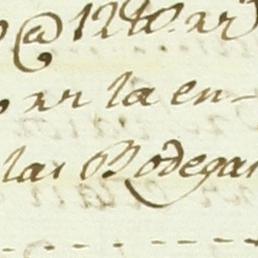 @ 1240. xr
xr la en-
las Bodegas